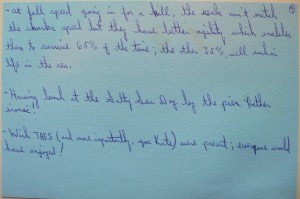 - at full speed going in for a kill, the seals can't match
the sharks speed but they have better agility, which enables
them to survive 65% of the time; the other 35%, well such is
life in the sea.
- Having lunch at the Salty Sea Dog by the pier. Rather
ironic!
- Wish TABS (and more importantly, you Kate) were present; everyone would
have enjoyed!